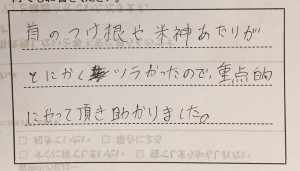 首のつけ根や米神あたりが
とにかくツラかったので、重点的
にやって頂き助かりました。